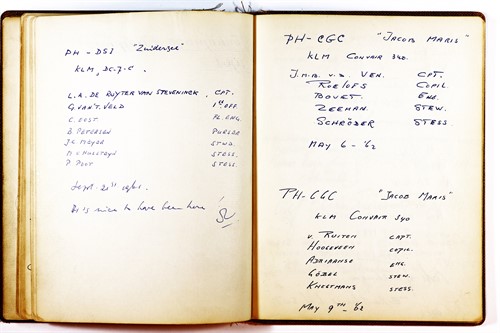 PH-DSI "Zuiderzee"
KLM, DC.7.C.
L.A. DE RUYTER VAN STEVENINCK. CPT.
G. VAN'T. VELD. 1st OFF.
C. OOST FL. ENG.
B PETERSEN PURSER
J.C MEYER STWD.
STESS.
P. POOT STESS.
Sept. 21st 1961.
It is nice to have been here
PH-CGC "JACOB MARIS"
KLM CONVAIR 340.
J.M.B. v.d. VEN. CPT.
ROELOFS COPIL.
BOVET. ENG.
ZEEMAN. STEW.
SCHRÖDER STESS.
MAY 6 - '62
PH-CGC "JACOB MARIS"
KLM CONVAIR 340
v. RUITEN CAPT.
HOOGEVEEN COPIL.
ADRIAANSE ENG.
GÖBEL STEW.
KNEGTMANS STESS.
MAY 9TH - '62